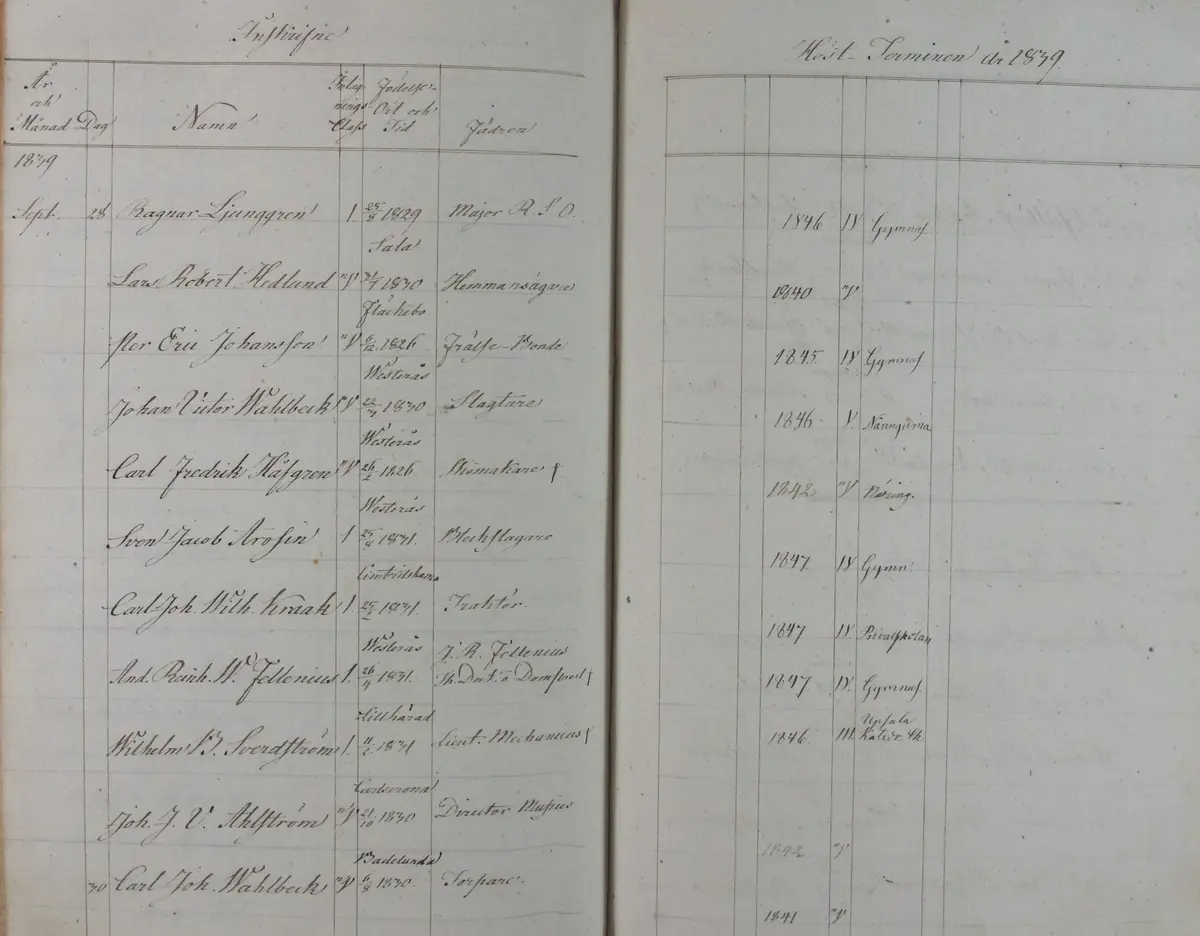 Inskrifne
År och Månad
Dag
Namn
Intagnings Class
Födelse-Ort och Tid
Fädren
1839
Sept. 28 Ragnar Ljunggren 1. 25/8 1829 Major R. S. O.
Sala
Lars Robert Hedlund "V 31/7 1830 Hemmansägare
Fläckebo
Per Eric Johansson "V 6/12 1826 Frälse-Bonde
Westerås
Johan Victor Wahlbeck "V 22/3 1830 Slagtare
Westerås
Carl Fredrik Håfgren "V 26/2 1826 Skomakare †
Westerås
Sven Jacob Arosin 1 25/8 1831. Bleckslagare
Cimbrishamn
Carl Joh. Wilh. Kraak 1. 25/2 1831. Traktör.
Westerås J. R. Fellenius
And. Reinh. W. Fellenius 1. 26/4 1831. Th. Doct. o Domprost †
Lillhärad
Wilhelm B. Sverdström 1. 11/2 1831 Lieut. Mechanicus †
Carlscrona
Joh. J. V. Ahlström "V 21/10 1830 Director Musices
Badelunda
30 Carl Joh. Wahlbeck "V 6/8 1830. Torpare.
Höst-Terminen år 1839
1846 IV Gymnas.
1840 "V
1845 IV Gymnas.
1846 V. Näringarna
1842 "V Näring.
1847 IV Gymn.
1847 IV. Privatskolan
1847 IV. Gymnas.
Upsala
1846 III.
1842 "V
1841 "V